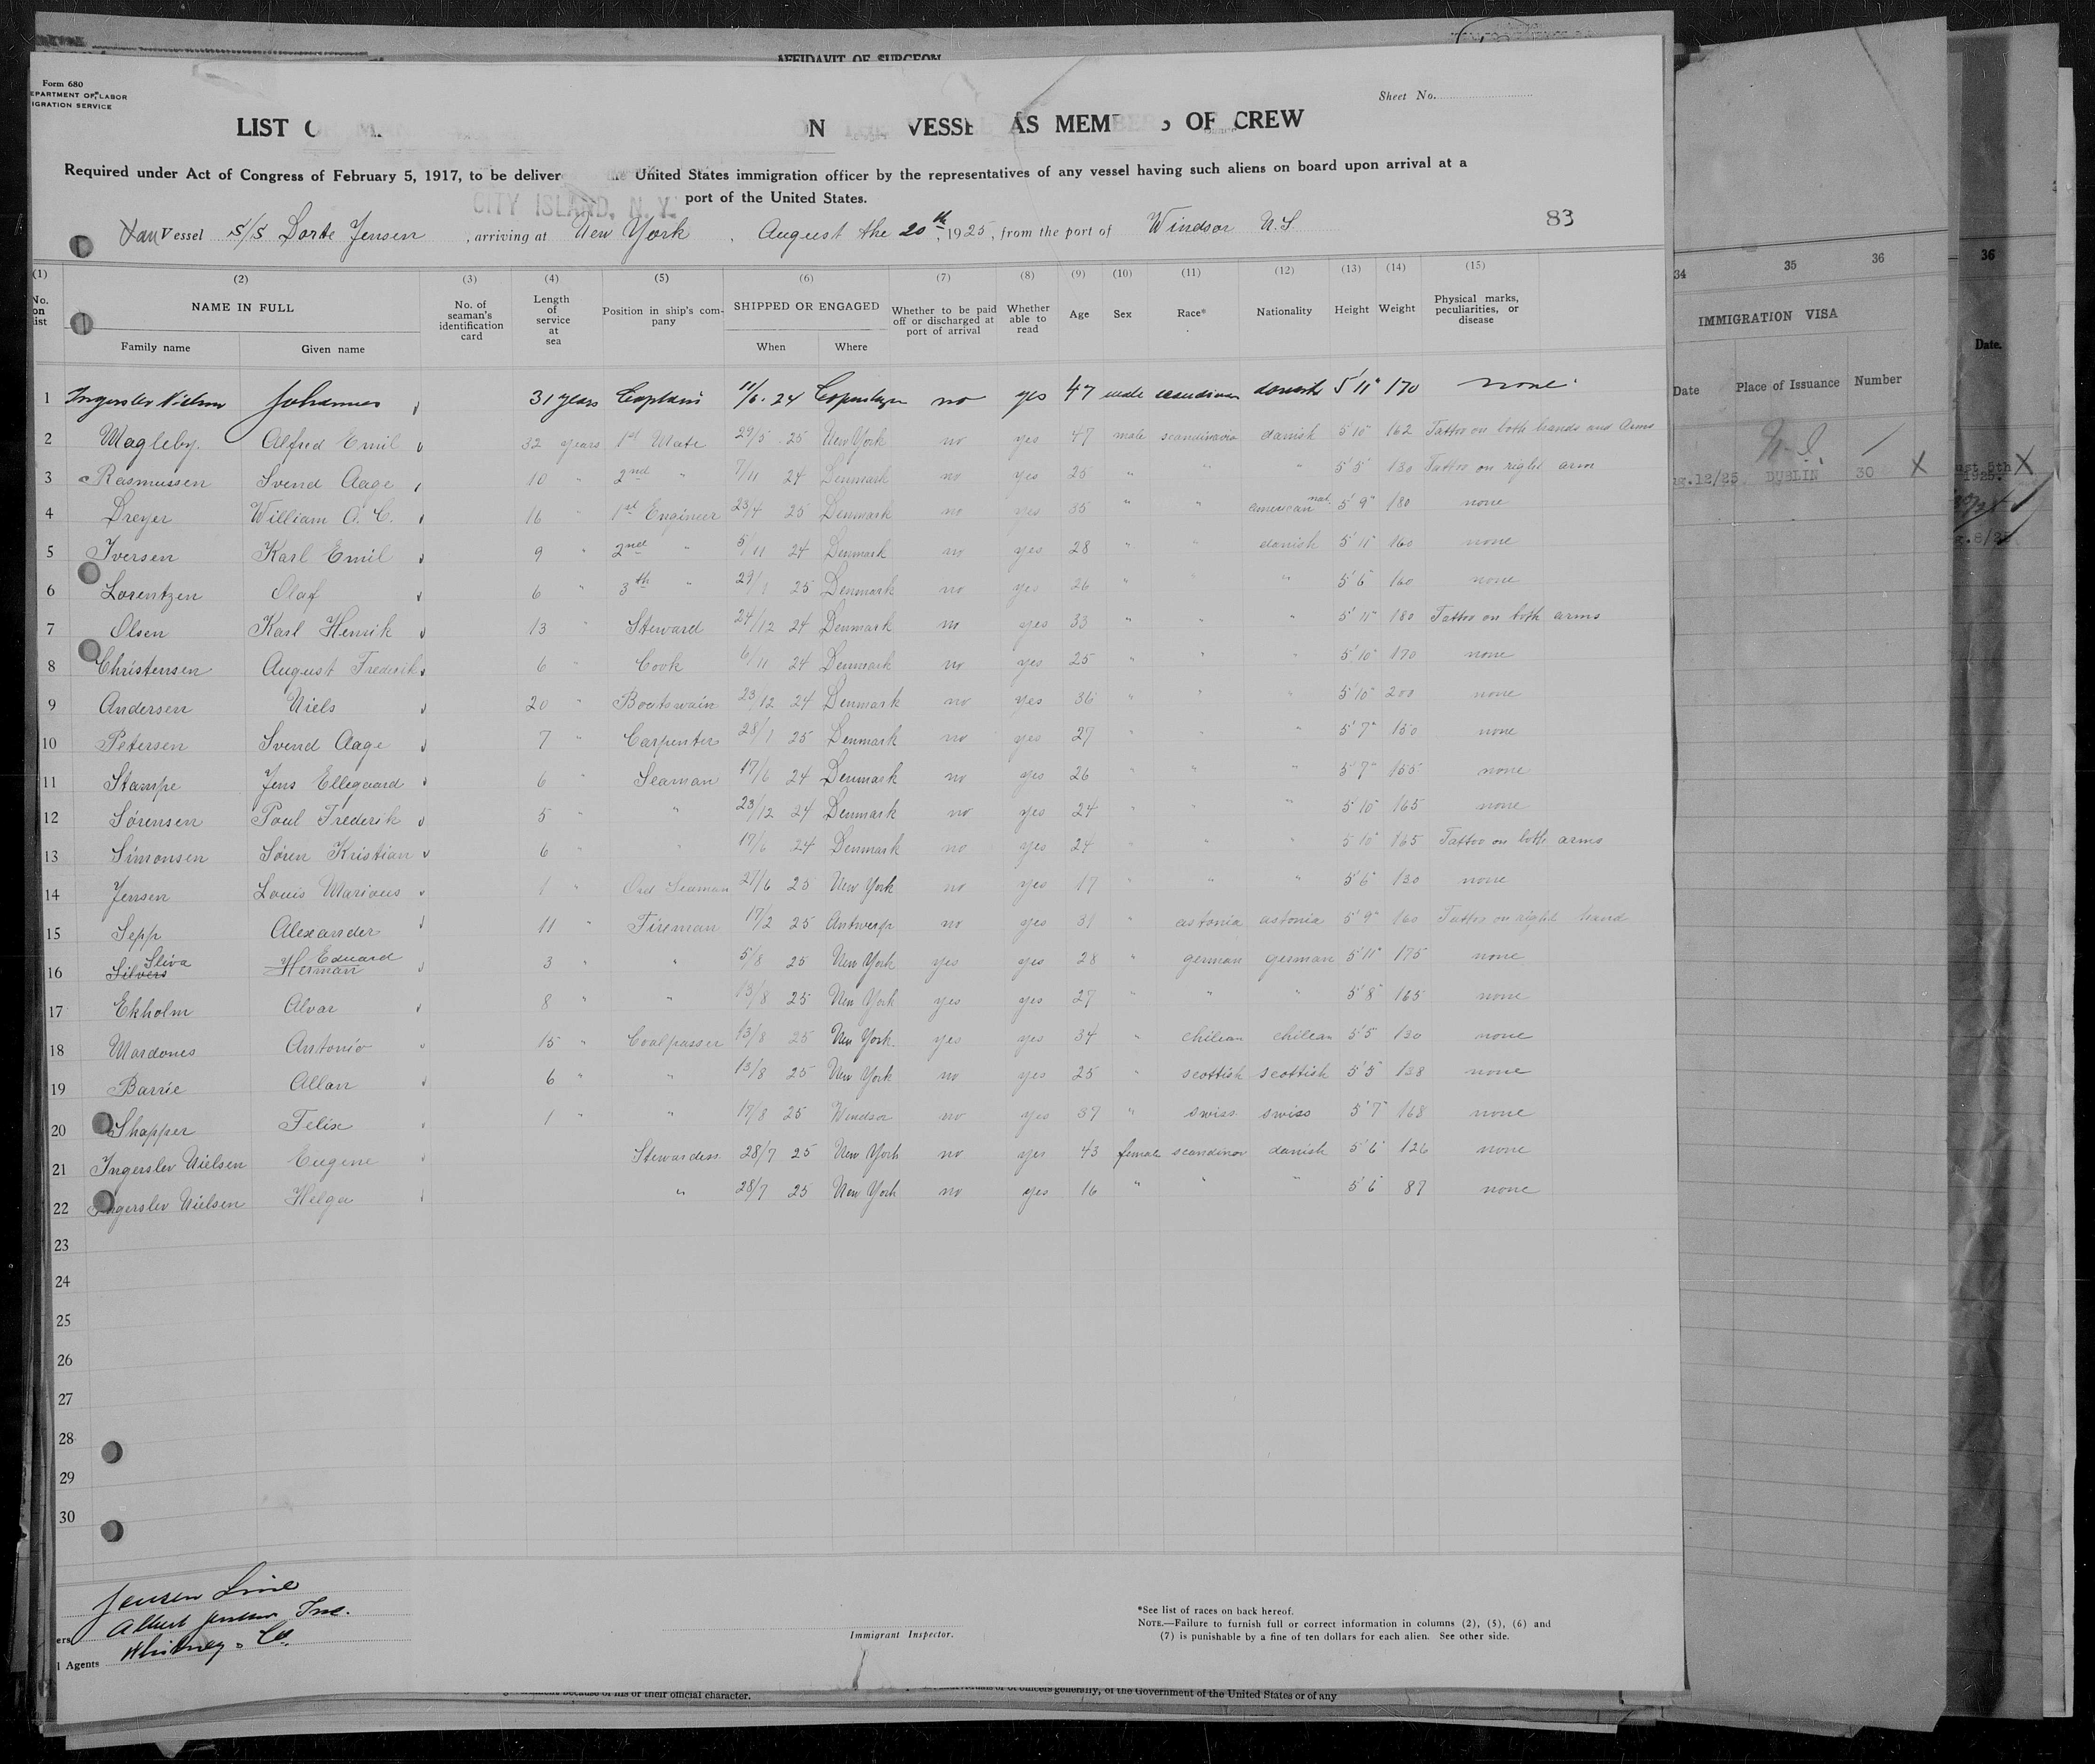 AFFIDAVIT OF SURGEON
Form 680
EPARTMENT OF LABOR
IGRATION SERVICE
Sheet No.
LIST ON VESSE AS MEMBER OF CREW
Required under Act of Congress of February 5, 1917, to be deliver United States immigration officer by the representatives of any vessel having such aliens on board upon arrival at a
port of the United States.
CITY ISLAND, N. Y.
Vessel S/S Dorte Jensen, arriving at New York, August the 20th, 1925, from the port of Windsor N.S. 83
(1) (2) (3) (4) (5) (6) (7) (8) (9) (10) (11) (12) (13) (14) (15)
No. on list NAME IN FULL Family name Given name No. of seaman's identification card Length of service at sea Position in ship's company SHIPPED OR ENGAGED When Where Whether to be paid off or discharged at port of arrival Whether able to read Age Sex Race* Nationality Height Weight Physical marks, peculiarities, or disease
1 Ingerslev Nielsen Johannes 31 years Captain 11/6. 24 Copenhagen no yes 47 male danish 5'11" 170 none
2 Magleby. Alfred Emil 32 years 1st Mate 29/5. 25 New York no yes 47 male scandinavia danish 5'10" 162 Tattoo on both hands and Arms
3 Rasmussen Svend Aage 10 " 2nd " 7/11 24 Denmark no yes 25 " " " 5'5" 130 Tattoo on right arm
4 Dreyer William A. C. 16 " 1st Engineer 23/4 25 Denmark no yes 35 " " american nat. 5'9" 180 none
5 Iversen Karl Emil 9 " 2nd " 5/11 24 Denmark no yes 28 " " danish 5'11" 160 none
6 Lorentzen Olaf 6 " 3th " 29/1 25 Denmark no yes 26 " " " 5'6 160 none
7 Olsen Karl Henrik 13 " Steward 24/12 24 Denmark no yes 33 " " " 5'11" 180 Tattoo on both arms
8 Christensen August Frederik 6 " Cook 6/11 24 Denmark no yes 25 " " " 5'10" 170 none
9 Andersen Niels 20 " Boatswain 23/12 24 Denmark no yes 36 " " " 5'10" 200 none
10 Petersen Svend Aage 7 " Carpenter 28/1 25 Denmark no yes 27 " " " 5'7" 150 none
11 Stampe Jens Ellegaard 6 " Seaman 17/6 24 Denmark no yes 26 " " " 5'7" 155 none
12 Sørensen Poul Frederik 5 " " 23/12 24 Denmark no yes 24 " " " 5'10" 165 none
13 Simonsen Søren Kristian 6 " " 17/6 24 Denmark no yes 24 " " " 5'10" 165 Tattoo on both arms
14 Jensen Louis Marious 1 " Ord Seaman 27/6 25 New York no yes 17 " " " 5'6" 130 none
15 Sepp Alexander 11 " Fireman 17/2 25 Antwerp no yes 31 " astonia astonia 5'9" 160 Tattoo on right hand
16 Silvers Sliva Herman Eduard 3 " " 5/8 25 New York yes yes 28 " german german 5'11" 175 none
17 Ekholm Alvar 8 " " 13/8 25 New York yes yes 27 " " " 5'8" 165 none
18 Mardones Antonio 15 " Coalpasser 13/8 25 New York yes yes 34 " chilean chilean 5'5 130 none
19 Barrie Allan 6 " " 13/8 25 New York no yes 25 " scottish scottish 5'5" 138 none
20 Shapper Felix 1 " " 18/8 25 Windsor no yes 37 " swiss swiss 5'7" 168 none
21 Ingerslev Nielsen Eugene Stewardess 28/7 25 New York no yes 43 female scandinav danish 5'6 126 none
22 Ingerslev Nielsen Helga " 28/7 25 New York no yes 16 " " " 5'6 87 none
23
24
25
26
27
28
29
30
Jensen Line
ers Albert Jensen Inc.
l Agents Whitney & Co.
Immigrant Inspector.
*See list of races on back hereof.
NOTE.—Failure to furnish full or correct information in columns (2), (5), (6) and
(7) is punishable by a fine of ten dollars for each alien. See other side.
because of his or their official character.
of officers generally, of the Government of the United States or of any
34 35 36
IMMIGRATION VISA
Date Place of Issuance Number
g.12/25 DUBLIN 30 X
36
Date.
ust 5th X
1925.